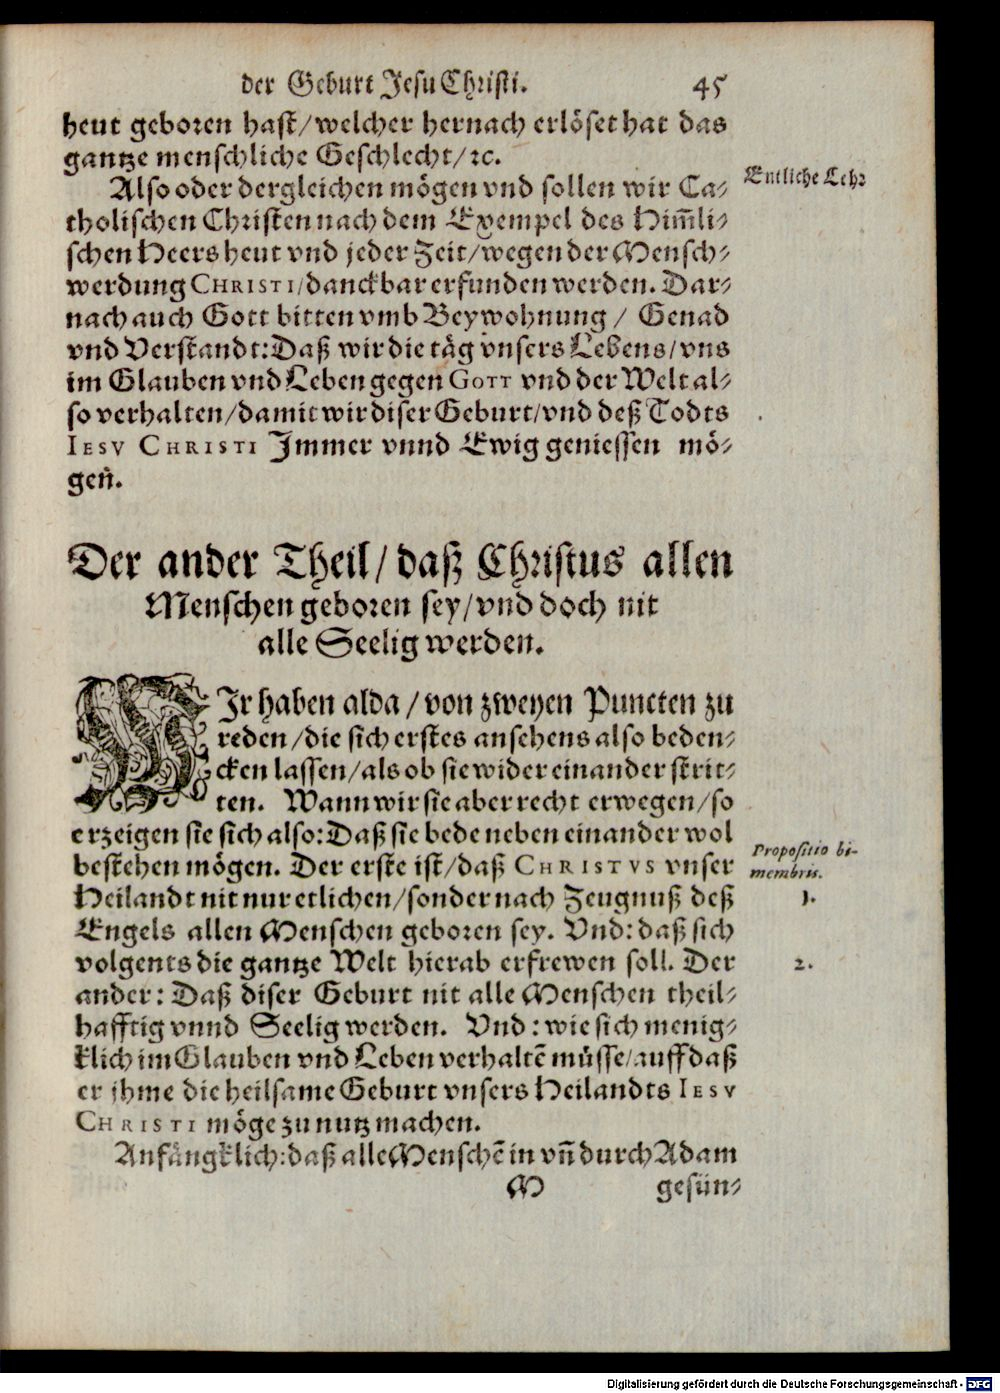 der Geburt Jesu Christi. 45
heut geboren hast/welcher hernach erlöset hat das
gantze menschliche Geschlecht/ꝛc.
Also oder dergleichen mögen vnd sollen wir Ca-
tholischen Christen nach dem Exempel des Him̃li-
schen Heers heut vnd jeder Zeit/wegen der Mensch-
werdung CHRISTI/danckbar erfunden werden. Dar-
nach auch Gott bitten vmb Beywohnung / Genad
vnd Verstandt: Daß wir die täg vnsers Lebens/vns
im Glauben vnd Leben gegen GOTT vnd der Welt al-
so verhalten/damit wir diser Geburt/vnd deß Todts
IESV CHRISTI Jmmer vnnd Ewig geniessen mö-
gen̄.
Entliche Lehr
Der ander Theil/daß Christus allen
Menschen geboren sey/vnd doch nit
alle Seelig werden.
WJr haben alda/von zweyen Puncten zu
reden/die sich erstes ansehens also beden-
cken lassen/als ob sie wider einander strit-
ten. Wann wir sie aber recht erwegen/so
erzeigen sie sich also: Daß sie bede neben einander wol
bestehen mögen. Der erste ist/daß CHRISTVS vnser
Heilandt nit nur etlichen/sonder nach Zeugnuß deß
Engels allen Menschen geboren sey. Vnd: daß sich
volgents die gantze Welt hierab erfrewen soll. Der
ander: Daß diser Geburt nit alle Menschen theil-
hafftig vnnd Seelig werden. Vnd: wie sich menig-
klich im Glauben vnd Leben verhaltē müsse/auff daß
er jhme die heilsame Geburt vnsers Heilandts IESV
CHRISTI möge zu nutz machen.
Anfängklich: daß alle Menschē in vn̄ durch Adam
Propositio bi-
membris.
1.
2.
M gesün-
Digitalisierung gefördert durch die Deutsche Forschungsgemeinschaft - DFG